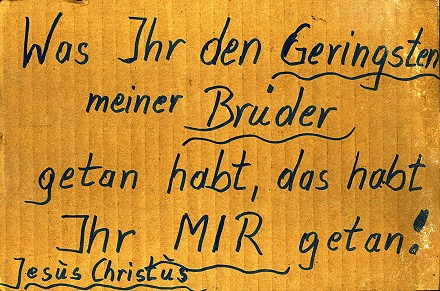 Was Ihr den Geringsten
meiner Brüder
getan habt, das habt
Ihr MIR getan!
Jesùs Christùs